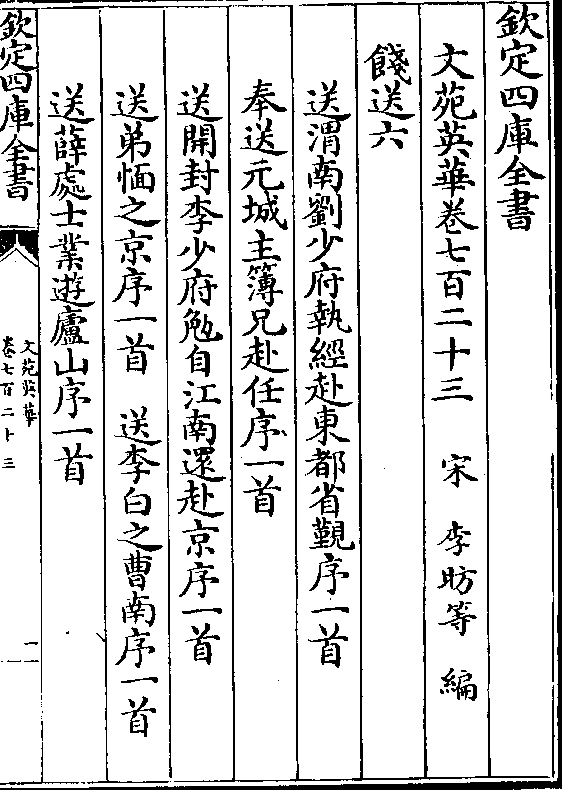 欽定四庫全書
文苑英華卷七百二十三 宋 李昉等 編
餞送六
送渭南劉少府執經赴東都省覲序一首
奉送元城主簿兄赴任序一首
送開封李少府勉自江南還赴京序一首
送弟愐之京序一首 送李白之曹南序一首
送薛處士業遊廬山序一首
欽定四庫全書
文苑英華
卷七百二十三
一